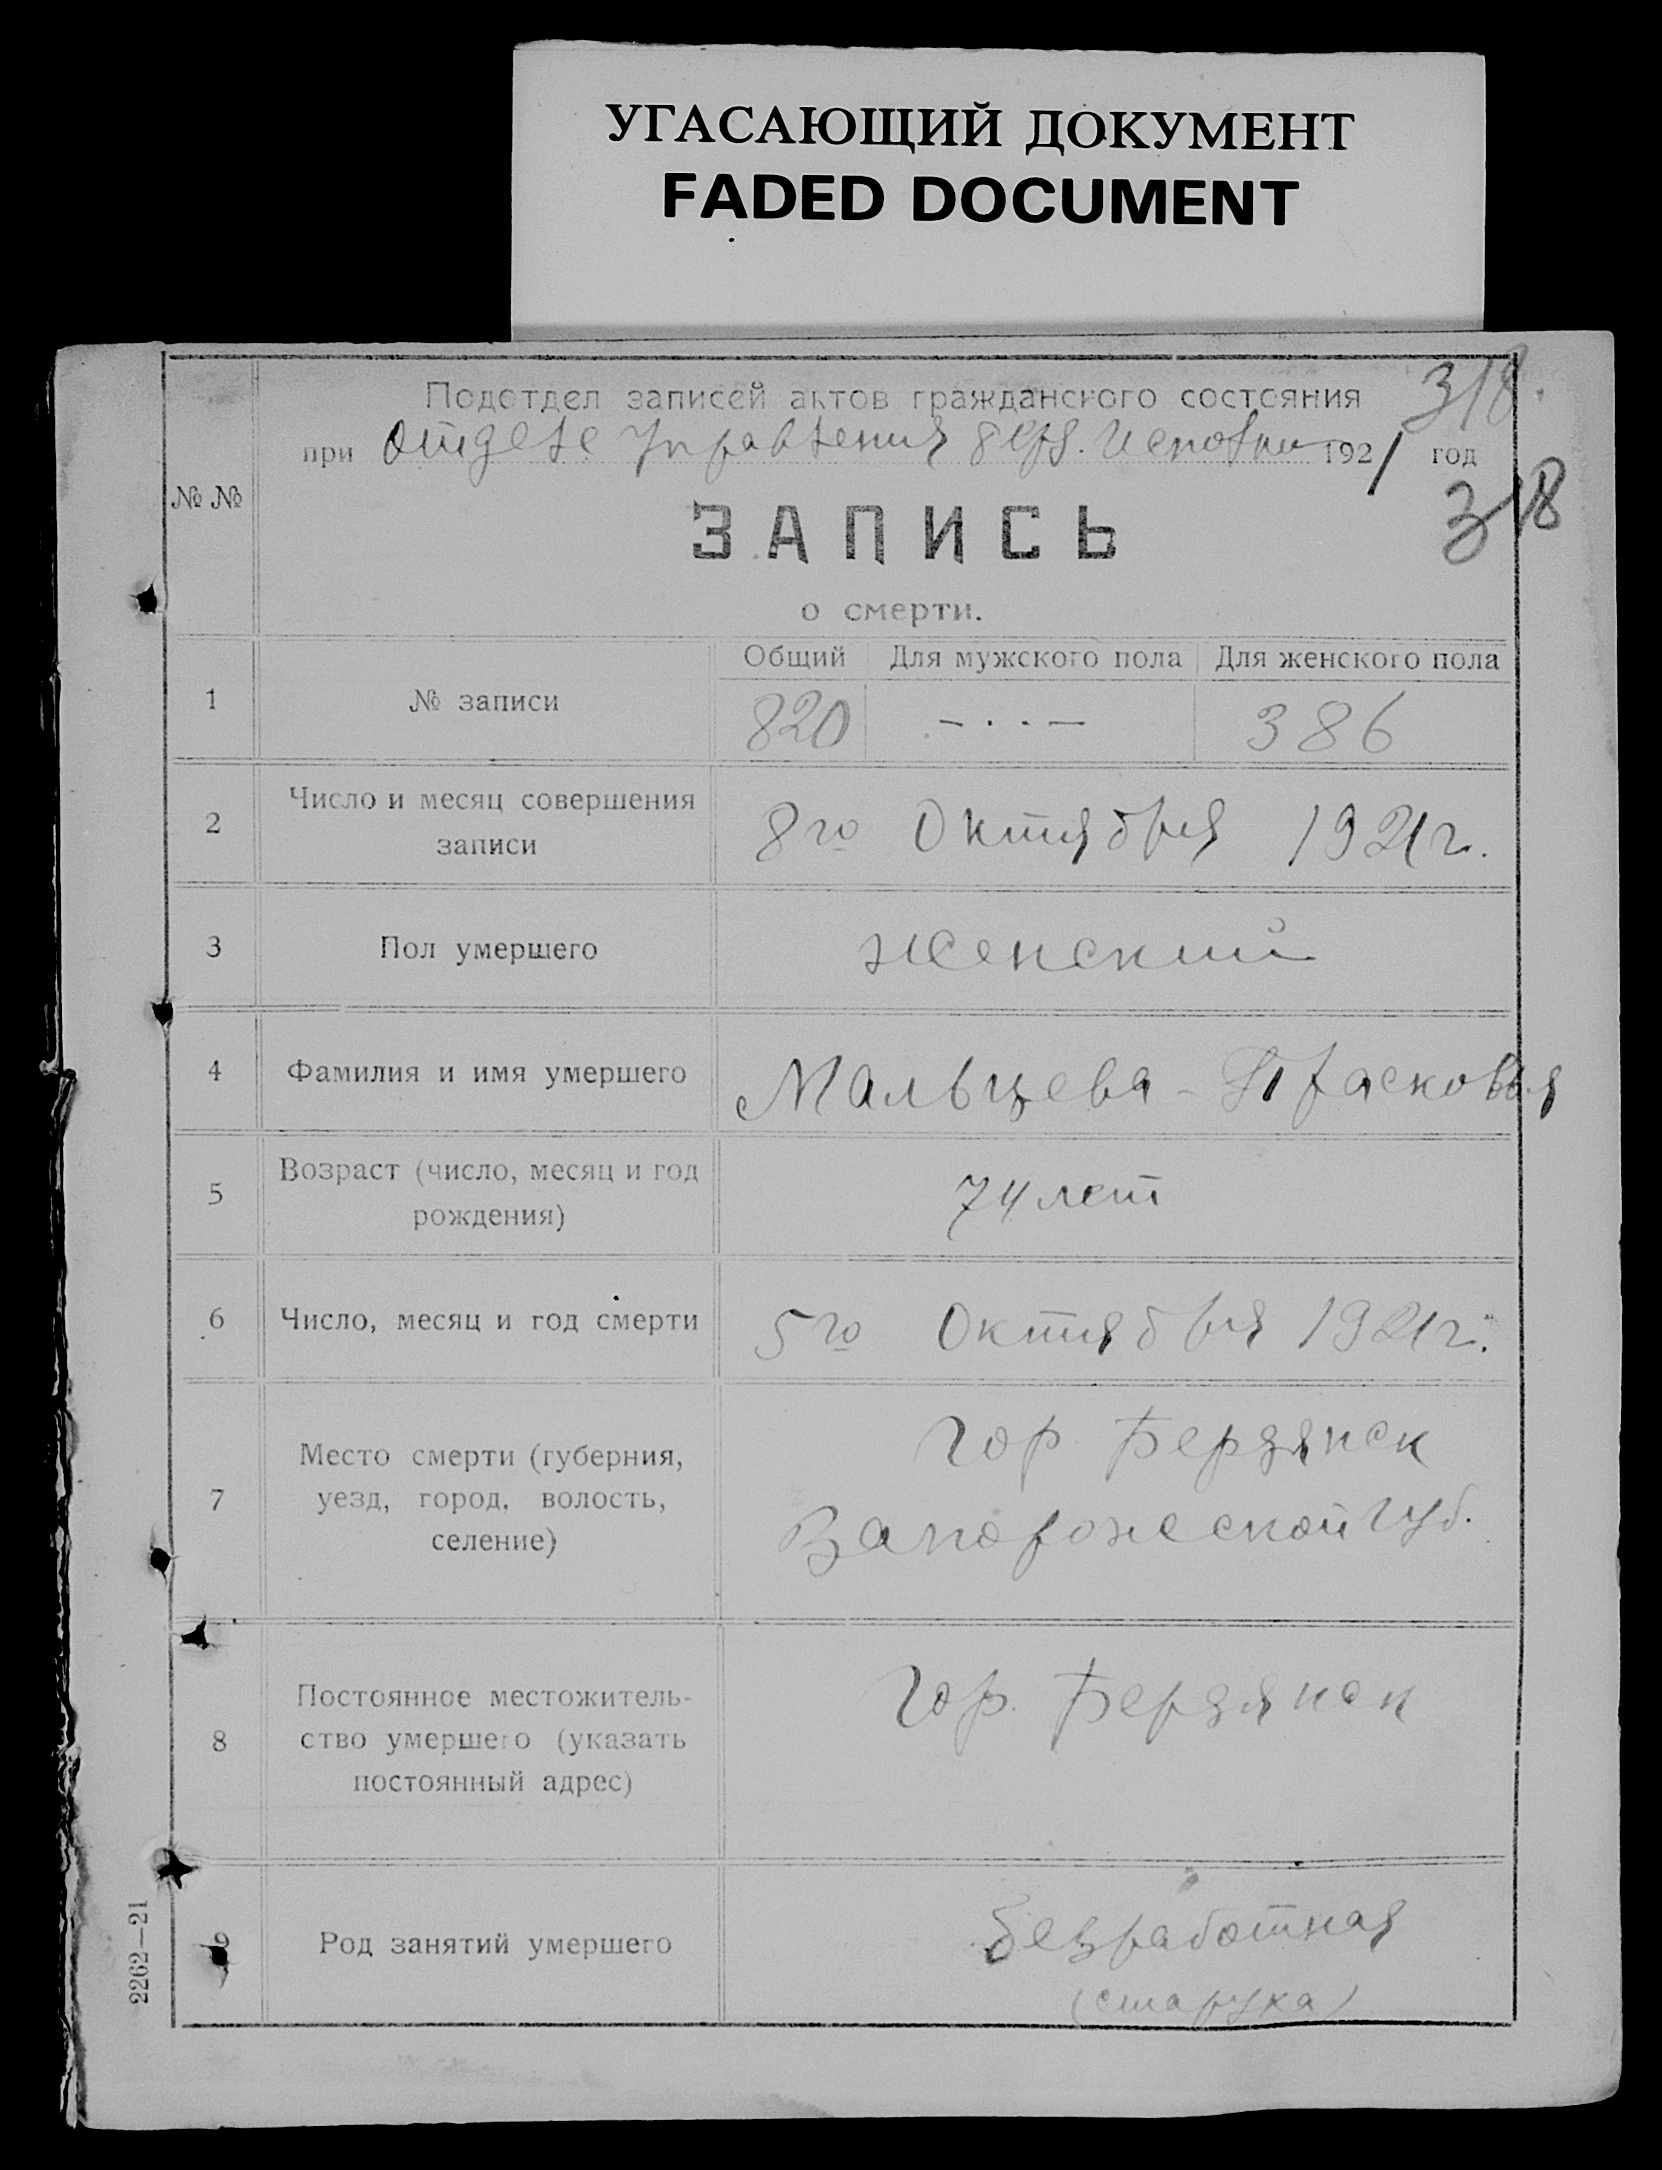 УГАСАЮЩИЙ ДОКУМЕНТ
FADED DOCUMENT
Подотдел записей актов гражданского состояния
318.
при Отделе Управления Берд. Исполком 1921 год
318
№ №
ЗАПИСЬ
о смерти.
Общий Для мужского пола Для женского пола
1 № записи 820 — · · — 386
2 Число и месяц совершения
записи
8го Октября 1921г.
3 Пол умершего женский
4 Фамилия и имя умершего Мальцева - Прасковья
5 Возраст (число, месяц и год
рождения)
74 лет
6 Число, месяц и год смерти 5го Октября 1921г.
7 Место смерти (губерния,
уезд, город, волость,
селение)
Гор. Бердянск
Запорожской губ.
8 Постоянное местожитель-
ство умершего (указать
постоянный адрес)
Гор. Бердянск
9 Род занятий умершего безработная
(старуха)
2262—21